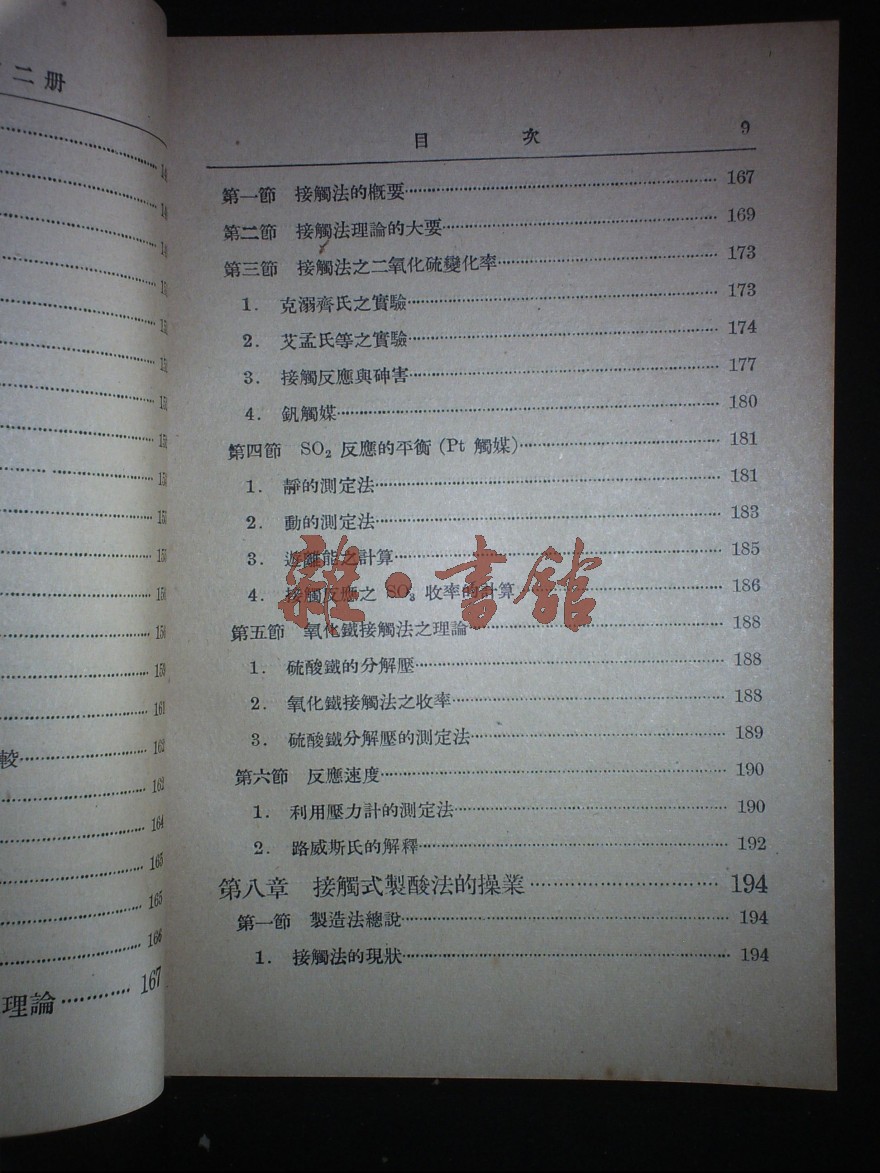 二册
較 162
163
164
165
165
166
理論 167
目 次 9
第一節 接觸法的概要 167
第二節 接觸法理論的大要 169
第三節 接觸法之二氧化硫變化率 173
1. 克溺齊氏之實驗 173
2. 艾孟氏等之實驗 174
3. 接觸反應與砷害 177
4. 釩觸媒 180
第四節 SO₂ 反應的平衡 (Pt 觸媒) 181
1. 靜的測定法 181
2. 動的測定法 183
3. 遊離能之計算 185
4. 接觸反應之 SO₃ 收率的計算 186
第五節 氧化鐵接觸法之理論 188
1. 硫酸鐵的分解壓 188
2. 氧化鐵接觸法之收率 188
3. 硫酸鐵分解壓的測定法 189
第六節 反應速度 190
1. 利用壓力計的測定法 190
2. 路威斯氏的解釋 192
第八章 接觸式製酸法的操業 194
第一節 製造法總說 194
1. 接觸法的現狀 194
雜·書館